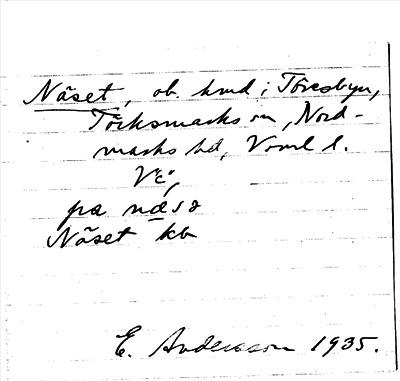 Näset, ob. hmd i Töresbyn,
Töcksmarks sn, Nord-
marks hd, Vrml l.
på næsə
Näset kb
E. Andersson 1935.